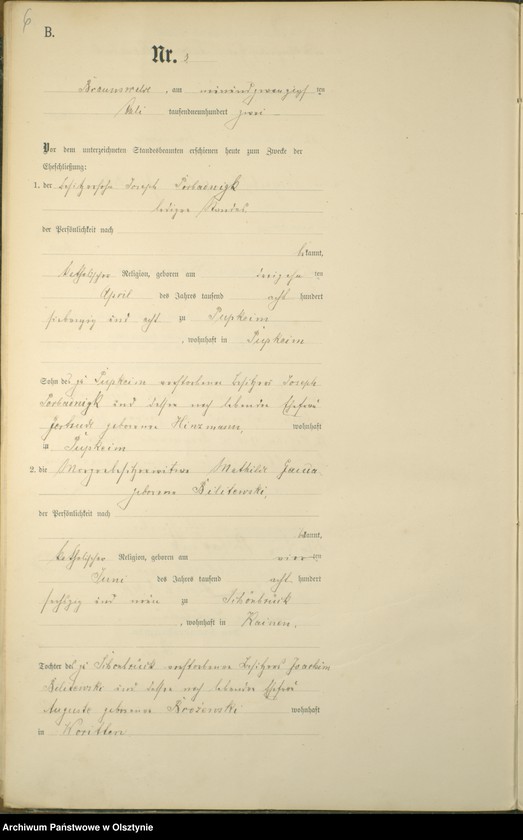 6
B.
Nr. 2
Braunswalde, am neunundzwanzigsten
Juli tausendneunhundert zwei
Vor dem unterzeichneten Standesbeamten erschienen heute zum Zwecke der
Eheschließung:
1. der Besitzersohn Joseph
ledigen Standes,
der Persönlichkeit nach
bekannt,
katholischer Religion, geboren am dreizehn ten
April des Jahres tausend acht hundert
siebenzig und acht zu Pupkeim
, wohnhaft in Pupkeim
Sohn des zu Pupkeim verstorbenen Besitzers Joseph
und dessen noch lebender Ehefrau
geborene Hinzmann, wohnhaft
in Pupkeim
2. die Mathilde
geborene Bilitewski,
der Persönlichkeit nach
bekannt,
katholischer Religion, geboren am vier ten
Juni des Jahres tausend acht hundert
sechszig und neun zu Schönbrück
, wohnhaft in Kainen,
Tochter des zu Schönbrück verstorbenen Besitzers Joachim
Bilitewski und dessen noch lebender Ehefrau
Auguste geborene wohnhaft
in Woritten
Archiwum Państwowe w Olsztynie